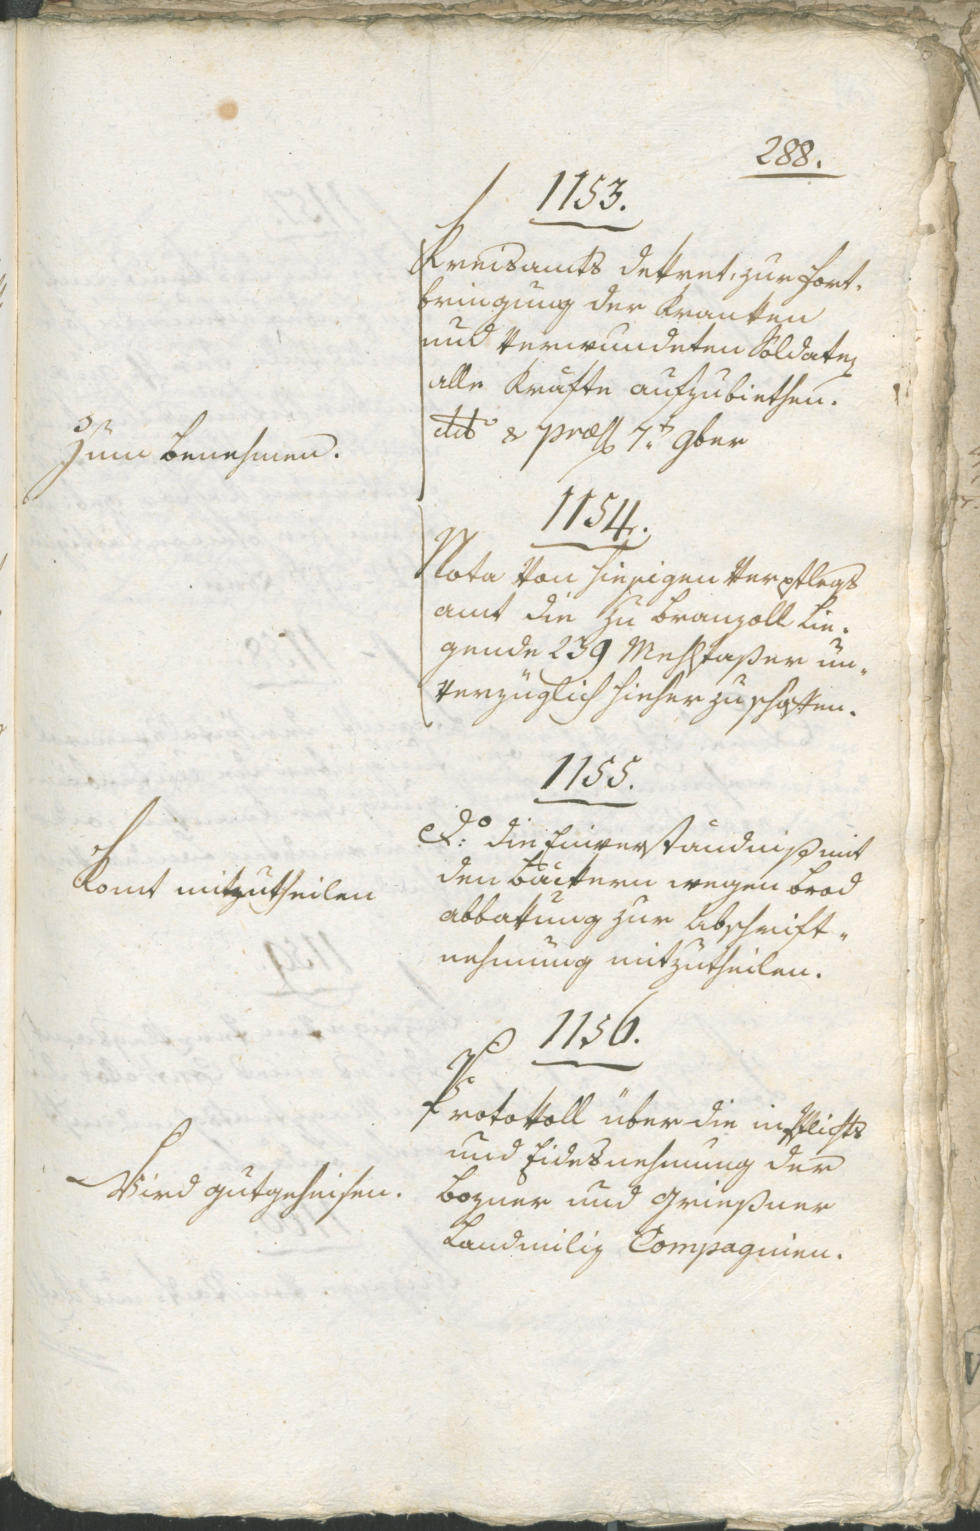 288.
1153.
Kreisamts Dekret, zur Fort-
bringung der Kranken
und Verwundeten Soldaten
alle Kräfte aufzubiethen.
ddo & præs 7t 9ber
Zum Benehmen.
1154.
Nota Von hiesigen Verpflegs
amt die zu Branzoll lie-
gende 239 Mehlfaßer un-
verzüglich hieher zu schaffen.
1155.
Do: die Einverständniß mit
den Bäckern wegen Brod
abbakung zur Abschrift-
nehmung mitzutheilen.
Komt mitzutheilen
1156.
Protokoll über die in Pflichts
und Eidesnehmung der
Bozner und Grießner
Landmiliz Compagnien.
Wird gutgeheisen.